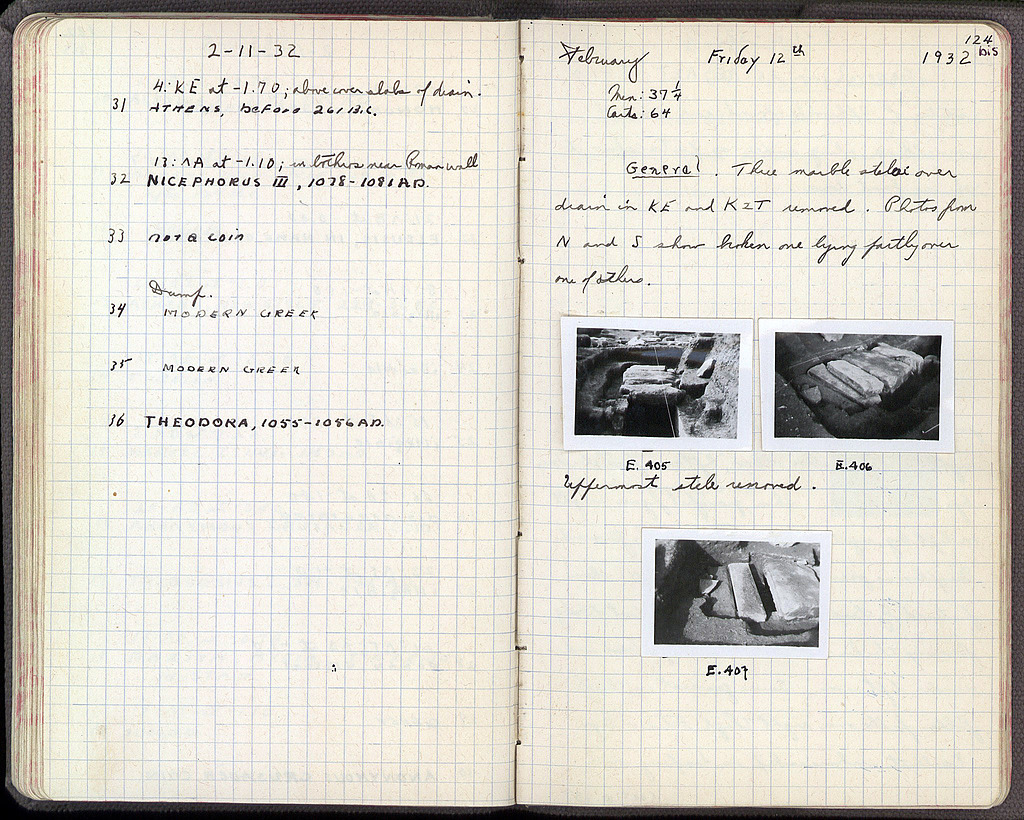 2-11-32
4:KE at -1.70; above cover slabs of drain.
31 ATHENS, before 261 B.C.
13:ΛA at -1.10; in bothros near Roman wall
32 NICEPHORUS III, 1078-1081 A.D.
33 not a coin
Dump.
34 MODERN GREEK
35 MODERN GREEK
36 THEODORA, 1055-1056 A.D.
124 bis
February Friday 12th 1932
Men: 37 1/4
Carts: 64
General. Three marble stelai over
drain in KE and KΣT removed. Photos from
N and S show broken one lying partly over
one of others.
E. 405 E. 406
Uppermost stele removed.
E. 407